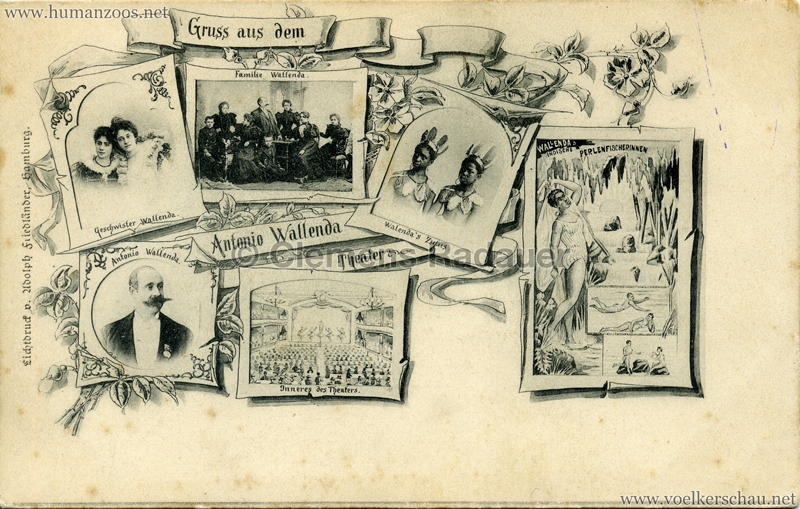 www.humanzoos.net
Gruss aus dem
Familie Wallenda.
Geschwister Wallenda.
WALLENDA'S
INDISCHE PERLENFISCHERINNEN
Antonio Wallenda
Theater
© Clemens Radauer
Antonio Wallenda.
Inneres des Theaters.
Lichtdruck v. Adolph Friedländer, Hamburg.
www.voelkerschau.net